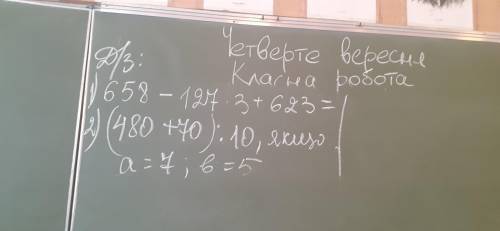 Четверте вересня
Класна робота
Д/З:
1) 658 - 127 · 3 + 623 =
2) (480 + 70) : 10, якщо
a = 7; в = 5